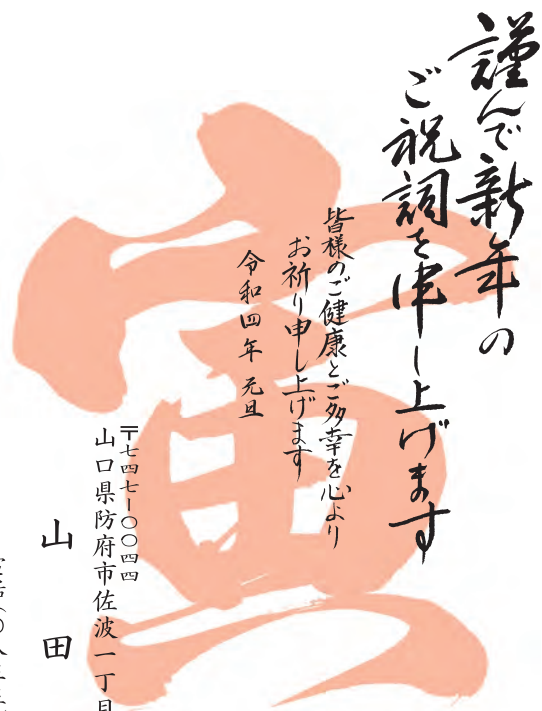 謹んで新年の
ご祝詞を申し上げます
皆様のご健康とご多幸を心より
お祈り申し上げます
令和四年 元旦
〒七四七-〇〇四四
山口県防府市佐波一丁目
山田
寅